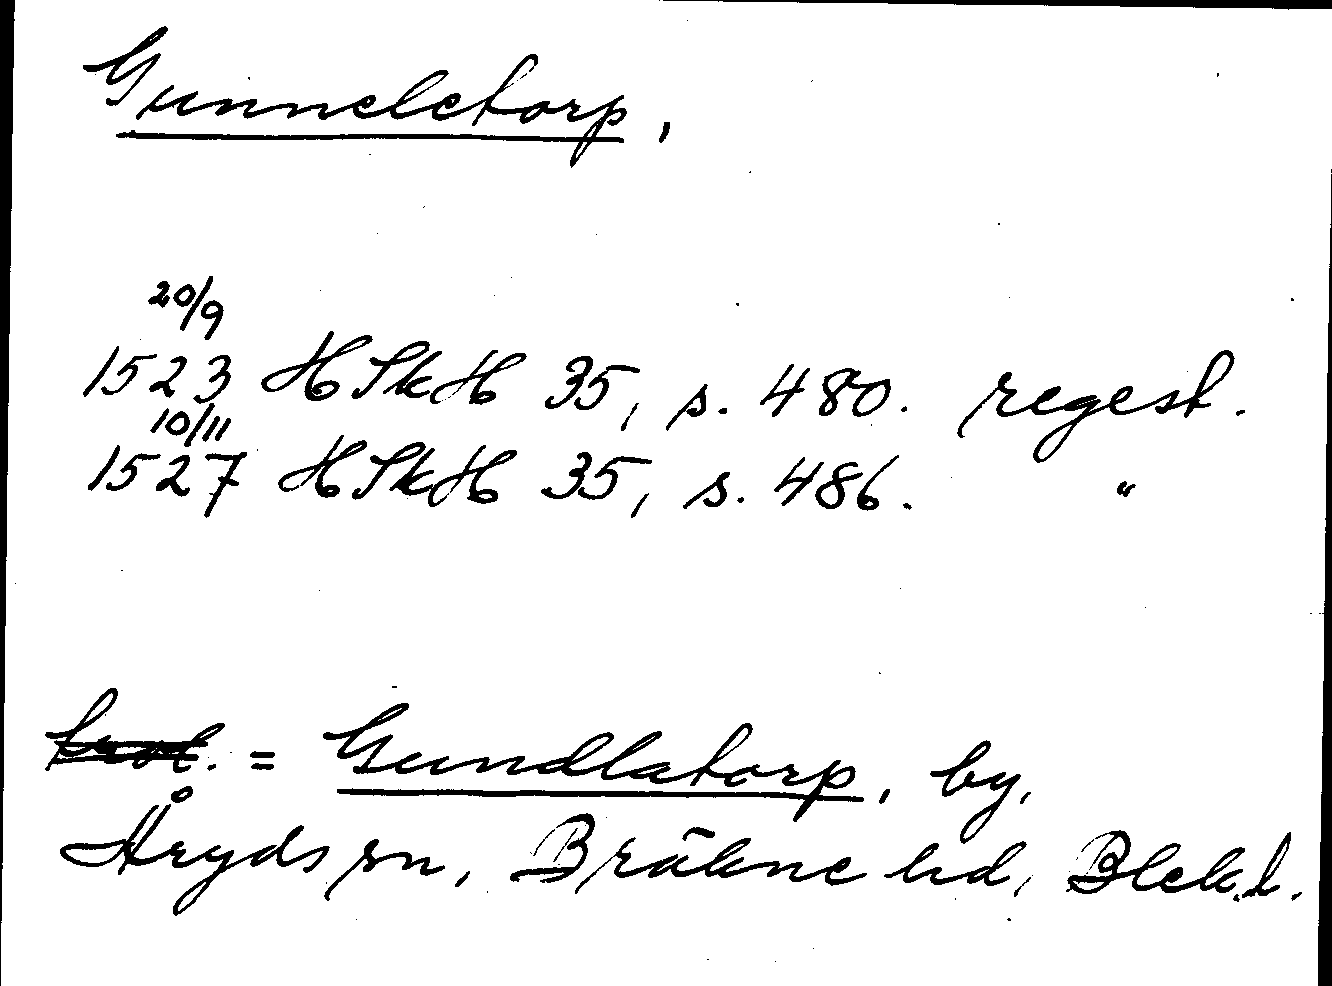 Gunneletorp,
20/9
1523 HSkH 35, s. 480. regest.
10/11
1527 HSkH 35, s. 486. "
trol. = Gundlatorp, by,
Åryds sn, Bräkne hd, Blek.l.